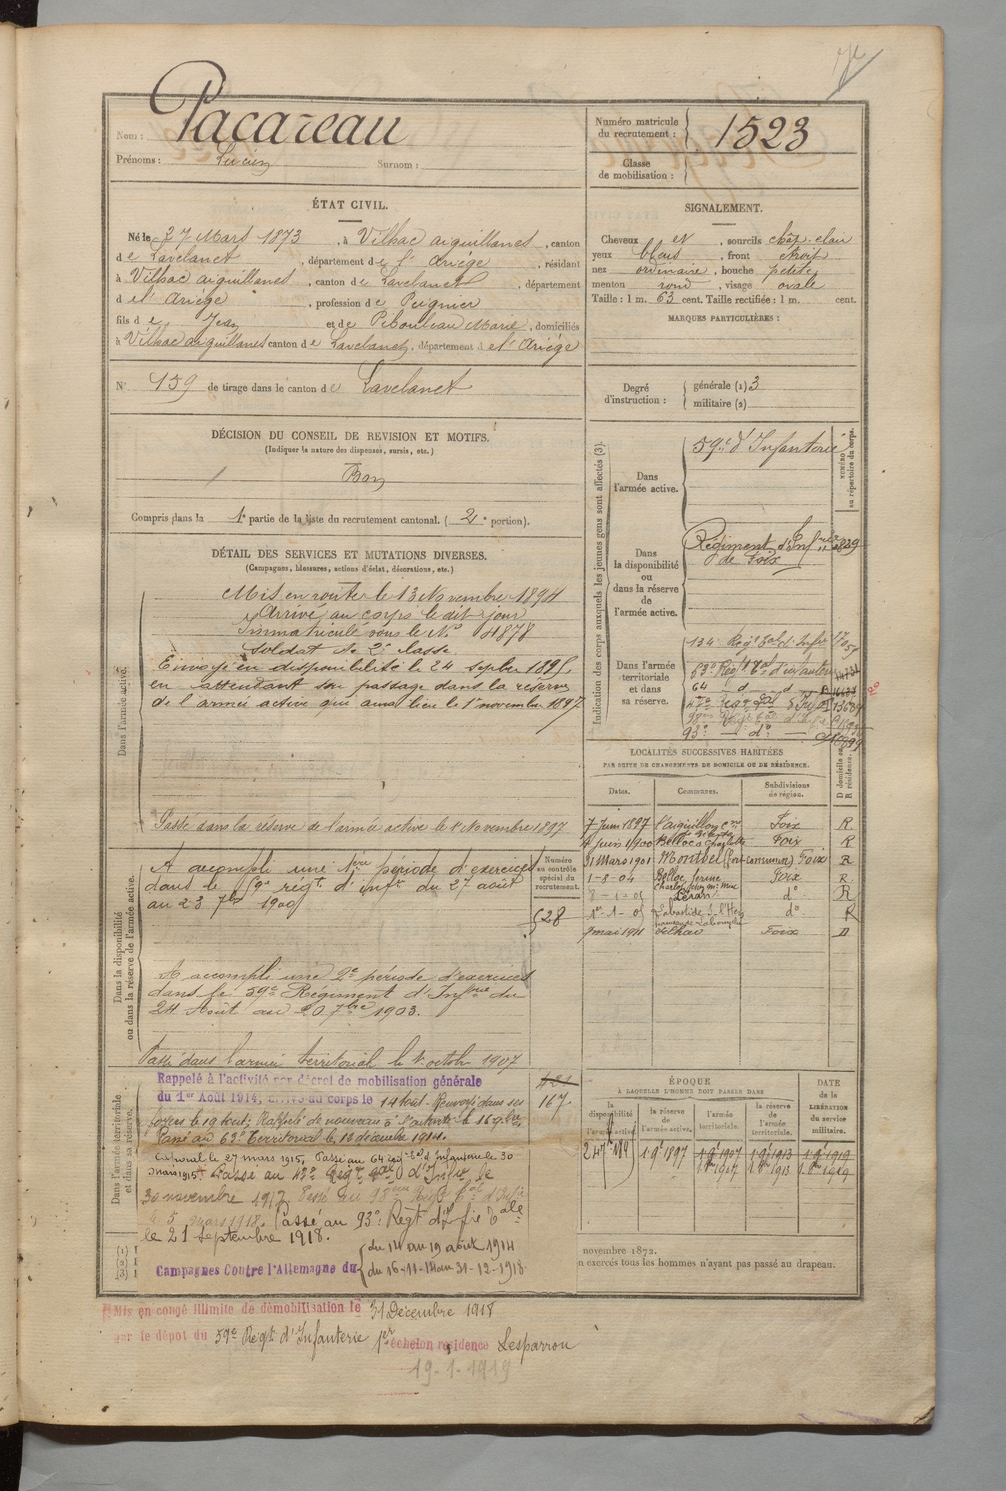 Nom : Pacareau
Prénoms : Lucien Surnom :
Numéro matricule du recrutement : 1523
Classe de mobilisation :
ÉTAT CIVIL.
Né le 27 Mars 1873, à Vilhac aiguillanes, canton
de Lavelanet, département de l'Ariège, résidant
à Vilhac aiguillanes, canton de Lavelanet, département
de l'Ariège, profession de Peignier
fils de Jean et de Pibouleau Marie, domiciliés
à Vilhac aiguillanes canton de Lavelanet, département de l'Ariège
N° 159 de tirage dans le canton de Lavelanet
SIGNALEMENT.
Cheveux et, sourcils chât. clair
yeux bleus, front étroit
nez ordinaire, bouche petite
menton rond, visage ovale
Taille : 1 m. 63 cent. Taille rectifiée : 1 m. cent.
MARQUES PARTICULIÈRES :
Degré d'instruction : générale (1) 3
militaire (2)
DÉCISION DU CONSEIL DE REVISION ET MOTIFS.
(Indiquer la nature des dispenses, sursis, etc.)
Bon
Compris dans la 1e partie de la liste du recrutement cantonal. (2e portion).
DÉTAIL DES SERVICES ET MUTATIONS DIVERSES.
(Campagnes, blessures, actions d'éclat, décorations, etc.)
Dans l'armée active.
Mis en route le 13 Novembre 1894
Arrivé au corps le dit jour
Immatriculé sous le N° 4878
Soldat de 2e classe
Envoyé en disponibilité le 24 septbre 1895,
en attendant son passage dans la réserve
de l'armée active qui aura lieu le 1er novembre 1897
Passé dans la réserve de l'armée active le 1er Novembre 1897
Dans la disponibilité ou dans la réserve de l'armée active.
A accompli une 1ère période d'exercices
dans le 59e régt d'Infie du 27 août
au 23 7bre 1900
A accompli une 2e période d'exercices
dans le 59e Régiment d'Infrie du
24 Août au 20 7bre 1903.
Passé dans l'armée territoriale le 1er octobre 1907
Numéro au contrôle spécial du recrutement.
528
421
167
Dans l'armée territoriale et dans sa réserve.
Rappelé à l'activité par décret de mobilisation générale
du 1er Août 1914, arrivé au corps le 14 août. Renvoyé dans ses
foyers le 19 août; Rappelé de nouveau à l'activité le 16 9bre.
Passé au 63e territorial le 13 décembre 1914.
Caporal le 27 mars 1915, Passé au 64e régt tal d'Infanterie le 30
mars 1915. Passé au 47e Régt tal d'Infie le
30 novembre 1917. Passé au 98ème Régt tal d'Infie
le 5 mars 1918. Passé au 93e Régt d'Infie tale
le 21 septembre 1918.
Campagnes Contre l'Allemagne du du 14 au 19 août 1914
du 16-11-14 au 31-12-1918
Indication des corps auxquels les jeunes gens sont affectés (3).
NUMÉRO au répertoire du corps.
Dans l'armée active. 59e d'Infanterie
Dans la disponibilité ou dans la réserve de l'armée active. Régiment d'Infrie de Foix 2829
Dans l'armée territoriale et dans sa réserve.
134e Régt tal d'Infie 1705
63e Régt tal d'infanterie
64 d d
47e Régt tal d'Infie 13684
98e Régt tal d'Infie
93e d°
LOCALITÉS SUCCESSIVES HABITÉES
PAR SUITE DE CHANGEMENTS DE DOMICILE OU DE RÉSIDENCE.
Dates. Communes. Subdivisions de région. D domicile ou R résidence.
7 Juin 1897 l'aiguillon Foix R
4 juin 1900 Belloc Foix R
31 Mars 1901 Montbel (fort commun) Foix R
1-8-04 Belloc ferme Foix R
8-1-05 Léran d° R
1er-1-05 Labastide S. l'Hers d° R
9 mai 1911 Vilhac Foix D
ÉPOQUE
À LAQUELLE L'HOMME DOIT PASSER DANS
la disponibilité de l'armée active. la réserve de l'armée active. l'armée territoriale. la réserve de l'armée territoriale.
DATE de la LIBÉRATION du service militaire.
24 7bre 1895 1.9bre 1897 1.9bre 1907 1.9bre 1913 1.9bre 1919
1.8bre 1907 1.8bre 1913 1.8bre 1919
novembre 1872.
n exercés tous les hommes n'ayant pas passé au drapeau.
(1) I
(2) I
(3) I
Mis en congé illimité de démobilisation le 31 Décembre 1918
par le dépôt du 59e Régt d'Infanterie 1er échelon résidence Lesparrou
19-1-1919